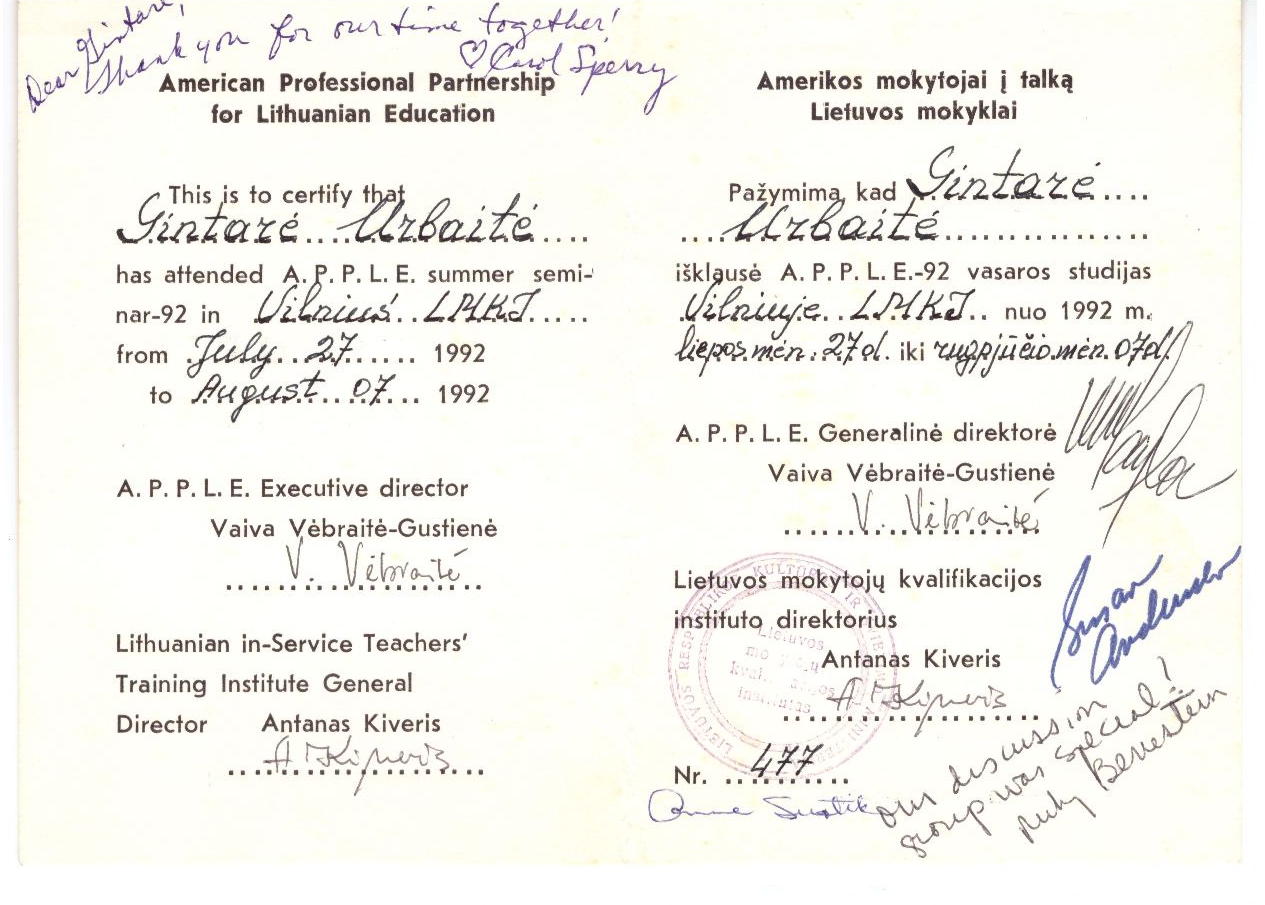 Dear Gintare,
Thank you for our time together!
♡ Carol Sperry
American Professional Partnership
for Lithuanian Education
This is to certify that
Gintarė Urbaitė
has attended A. P. P. L. E. summer semi-
nar-92 in Vilnius LMKI
from July 27 1992
to August 07 1992
A. P. P. L. E. Executive director
Vaiva Vėbraitė-Gustienė
V. Vėbraitė
Lithuanian in-Service Teachers'
Training Institute General
Director Antanas Kiveris
Amerikos mokytojai į talką
Lietuvos mokyklai
Pažymima, kad Gintarė
Urbaitė
išklausė A. P. P. L. E.-92 vasaros studijas
Vilniuje LMKI nuo 1992 m.
liepos mėn. 27d. iki rugpjūčio mėn. 07d.
A. P. P. L. E. Generalinė direktorė
Vaiva Vėbraitė-Gustienė
V. Vėbraitė
Lietuvos mokytojų kvalifikacijos
instituto direktorius
Antanas Kiveris
LIETUVOS RESPUBLIKOS KULTŪROS IR
Lietuvos
Nr. 477
Susan
Our discussion
group was special!
Ruby